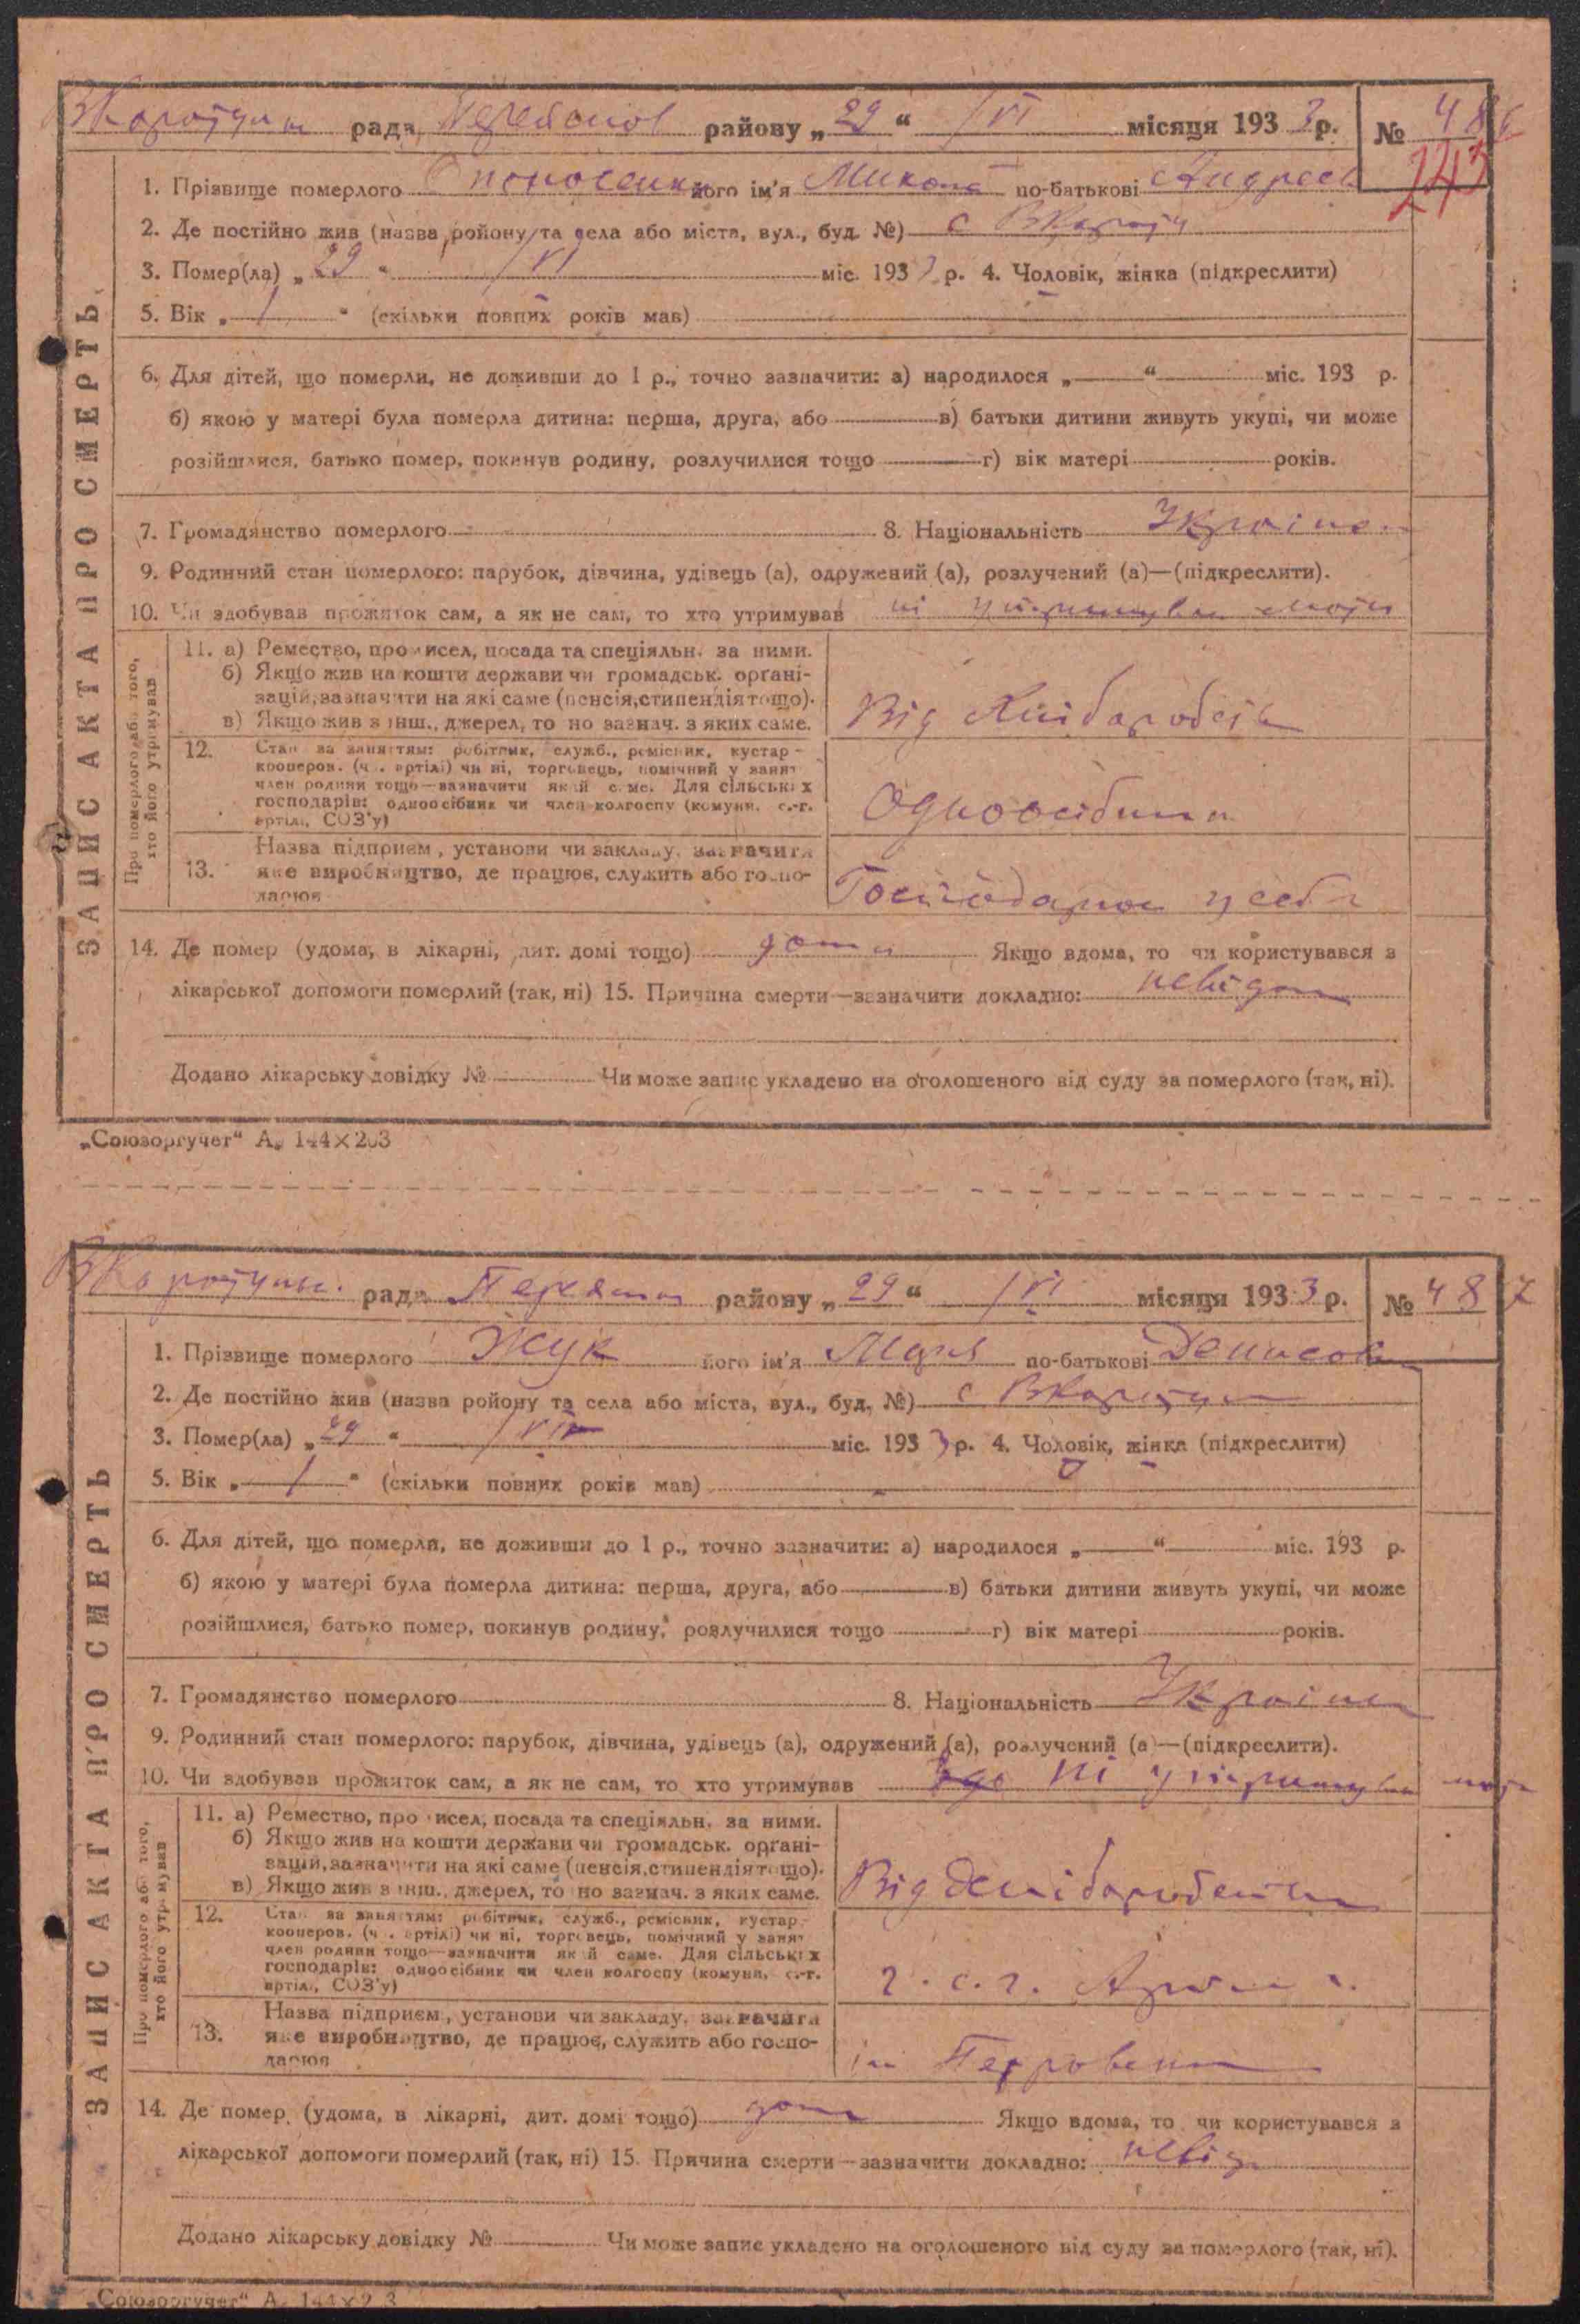 рада районну „ 29 “ VI місяця 1933 р. № 486
243
1. Прізвище померлого його ім'я Микола по-батькові Андреев
2. Де постійно жив (назва ройону та села або міста, вул., буд. №) с
3. Помер(ла) „ 29 “ VI міс. 1933 р. 4. Чоловік, жінка (підкреслити)
5. Вік „ 1 “ (скільки повних років мав)
6. Для дітей, що померли, не доживши до 1 р., точно зазначити: а) народилося „ “ міс. 193 р.
б) якою у матері була померла дитина: перша, друга, або в) батьки дитини живуть укупі, чи може
розійшлися, батько помер, покинув родину, розлучилися тощо г) вік матері років.
7. Громадянство померлого 8. Національність Україне
9. Родинний стан померлого: парубок, дівчина, удівець (а), одружений (а), розлучений (а)—(підкреслити).
10. Чи здобував прожиток сам, а як не сам, то хто утримував ні
11. а) Ремество, промисел, посада та спеціяльн. за ними.
б) Якщо жив на кошти держави чи громадськ. органі-
зацій, зазначити на які саме (пенсія, стипендія тощо).
в) Якщо жив з інш., джерел, то но зазнач. з яких саме.
Від
12. Стан за заняттям: робітник, служб., ремісник, кустар -
кооперов. (ч . артілі) чи ні, торговець, помічний у занят
член родини тощо—зазначити який саме. Для сільських
господарів: одноосібник чи член колгоспу (комуни, с.-г.
артілі, СОЗ'у)
Одноосібник
13. Назва підприєм , установи чи закладу, зазначити
яке виробництво, де працює, служить або госпо-
дарює
у себе
Про померлого або того,
хто його утримував
14. Де помер (удома, в лікарні, дит. домі тощо) дома Якщо вдома, то чи користувався з
лікарської допомоги померлий (так, ні) 15. Причина смерти—зазначити докладно: невідом
Додано лікарську довідку № Чи може запис укладено на оголошеного від суду за померлого (так, ні).
ЗАПИС АКТА ПРО СМЕРТЬ
„Союзоргучет“ А 144×203
рада районну „ 29 “ VI місяця 1933 р. № 487
1. Прізвище померлого Жук його ім'я Марія по-батькові Денисов
2. Де постійно жив (назва ройону та села або міста, вул., буд, №) с
3. Помер(ла) „ 29 “ міс. 1933 р. 4. Чоловік, жінка (підкреслити)
5. Вік „ 1 “ (скільки повних років мав)
6. Для дітей, що померли, не доживши до 1 р., точно зазначити: а) народилося „ “ міс. 193 р.
б) якою у матері була померла дитина: перша, друга, або в) батьки дитини живуть укупі, чи може
розійшлися, батько помер, покинув родину, розлучилися тощо г) вік матері років.
7. Громадянство померлого 8. Національність Україн
9. Родинний стан померлого: парубок, дівчина, удівець (а), одружений (а), розлучений (а)—(підкреслити).
10. Чи здобував прожиток сам, а як не сам, то хто утримував ні
11. а) Ремество, промисел, посада та спеціяльн. за ними.
б) Якщо жив на кошти держави чи громадськ. органі-
зацій, зазначити на які саме (пенсія, стипендія тощо).
в) Якщо жив з інш., джерел, то но зазнач. з яких саме.
Від
12. Стан за заняттям: робітник, служб., ремісник, кустар-
кооперов. (ч . артілі) чи ні, торговець, помічний у занят
член родини тощо—зазначити який саме. Для сільських
господарів: одноосібник чи член колгоспу (комуни, с.-г.
артілі, СОЗ'у)
13. Назва підприєм , установи чи закладу, зазначити
яке виробництво, де працює, служить або госпо-
дарює
ім
Про померлого або того,
хто його утримував
14. Де помер (удома, в лікарні, дит. домі тощо) дома Якщо вдома, то чи користувався з
лікарської допомоги померлий (так, ні) 15. Причина смерти—зазначити докладно:
Додано лікарську довідку № Чи може запис укладено на оголошеного від суду за померлого (так, ні).
ЗАПИС АКТА ПРО СМЕРТЬ
„Союзоргучет“ А 144×2 3